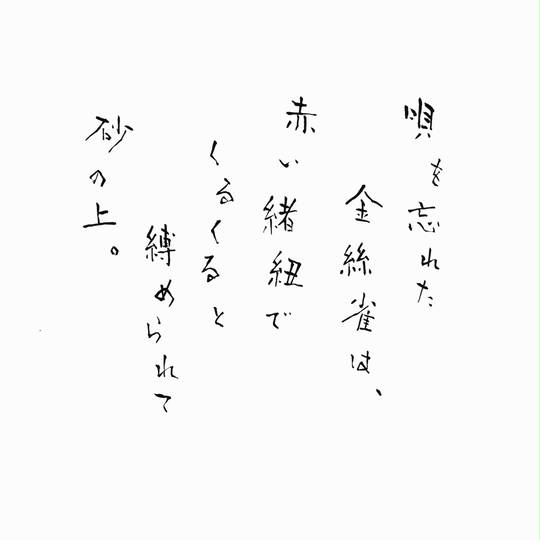 唄を忘れた
金絲雀は、
赤い緒紐で
くるくると
縛められて
砂の上。